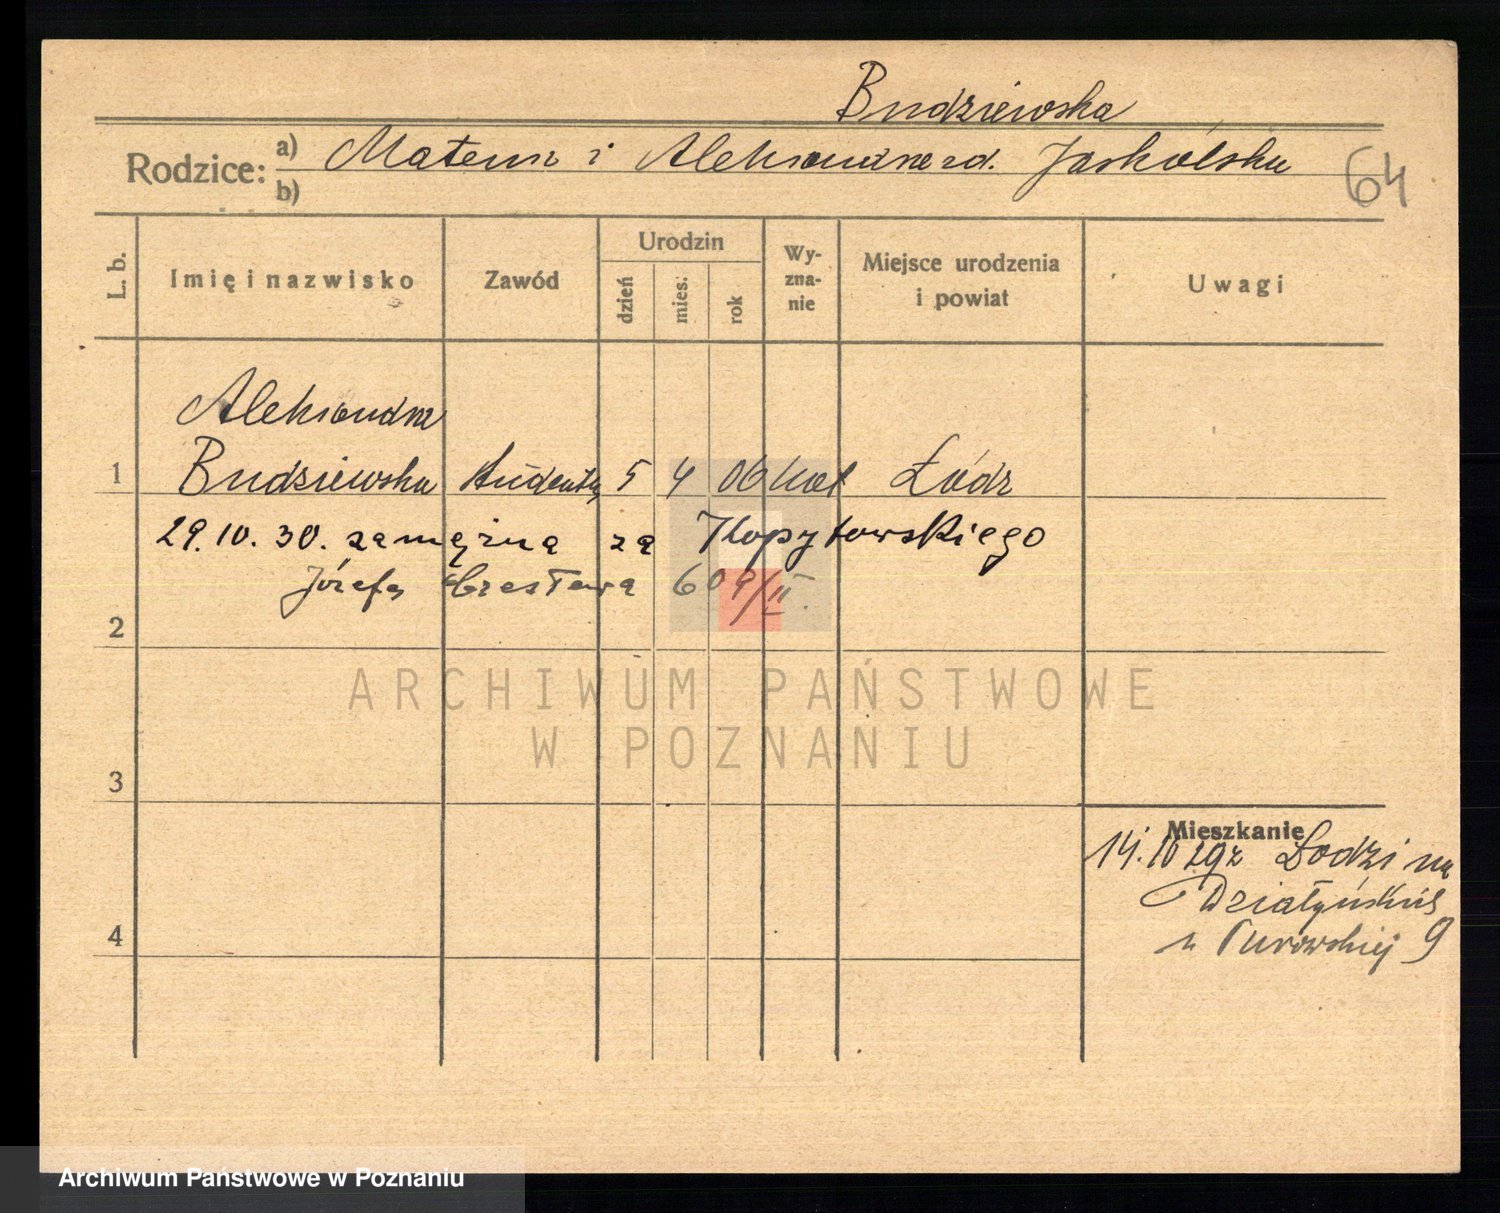 Budziewska
Rodzice: a) Mateusz i Aleksandra zd. Jaskólska
b)
64
L. b.
Imię i nazwisko
Zawód
Urodzin
dzień
mies.
rok
Wy-
zna-
nie
Miejsce urodzenia
i powiat
Uwagi
Aleksandra
1 Budziewska studentka 5 4 06 kat Łódź
29.10.30. zamężna za Kopytowskiego
Józefa Czesława 609/II.
2
ARCHIWUM PAŃSTWOWE
W POZNANIU
3
Mieszkanie
14.10 29 z Łodzi na
Działyńskich
u Turowskiej 9
4
Archiwum Państwowe w Poznaniu